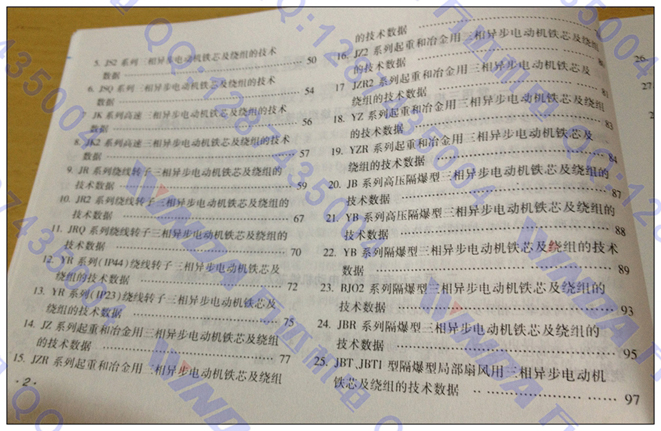 5. JS2 系列三相异步电动机铁芯及绕组的技术
数据 …… 50
6. JSQ 系列三相异步电动机铁芯及绕组的技术
数据 …… 54
JK 系列高速三相异步电动机铁芯及绕组的技术
数据 …… 56
8. JK2 系列高速三相异步电动机铁芯及绕组的技术
数据 …… 57
9. JR 系列绕线转子三相异步电动机铁芯及绕组的
技术数据 …… 59
10. JR2 系列绕线转子三相异步电动机铁芯及绕组的
技术数据 …… 67
11. JRQ 系列绕线转子三相异步电动机铁芯及绕组的
技术数据 …… 70
12. YR 系列(IP44)绕线转子三相异步电动机铁芯及
绕组的技术数据 …… 72
13. YR 系列(IP23)绕线转子三相异步电动机铁芯及
绕组的技术数据 …… 75
14. JZ 系列起重和冶金用三相异步电动机铁芯及绕组
的技术数据 …… 77
15. JZR 系列起重和冶金用三相异步电动机铁芯及绕组
·2·
的技术数据 ……
16. JZ2 系列起重和冶金用三相异步电动机铁芯及绕组
的技术数据 ……
17 JZR2 系列起重和冶金用三相异步电动机铁芯及
绕组的技术数据 ……
18. YZ 系列起重和冶金用三相异步电动机铁芯及绕组
的技术数据 …… 83
19. YZR 系列起重和冶金用三相异步电动机铁芯及
绕组的技术数据 …… 84
20. JB 系列高压隔爆型三相异步电动机铁芯及绕组的
技术数据 …… 87
21. YB 系列高压隔爆型三相异步电动机铁芯及绕组的
技术数据 …… 88
22. YB 系列隔爆型三相异步电动机铁芯及绕组的技术
数据 …… 89
23. BJO2 系列隔爆型三相异步电动机铁芯及绕组的
技术数据 …… 93
24. JBR 系列隔爆型三相异步电动机铁芯及绕组的
技术数据 …… 95
25. JBT、JBT1 型隔爆型局部扇风用三相异步电动机
铁芯及绕组的技术数据 …… 97
26.
27
QQ:1287435004
WINDA